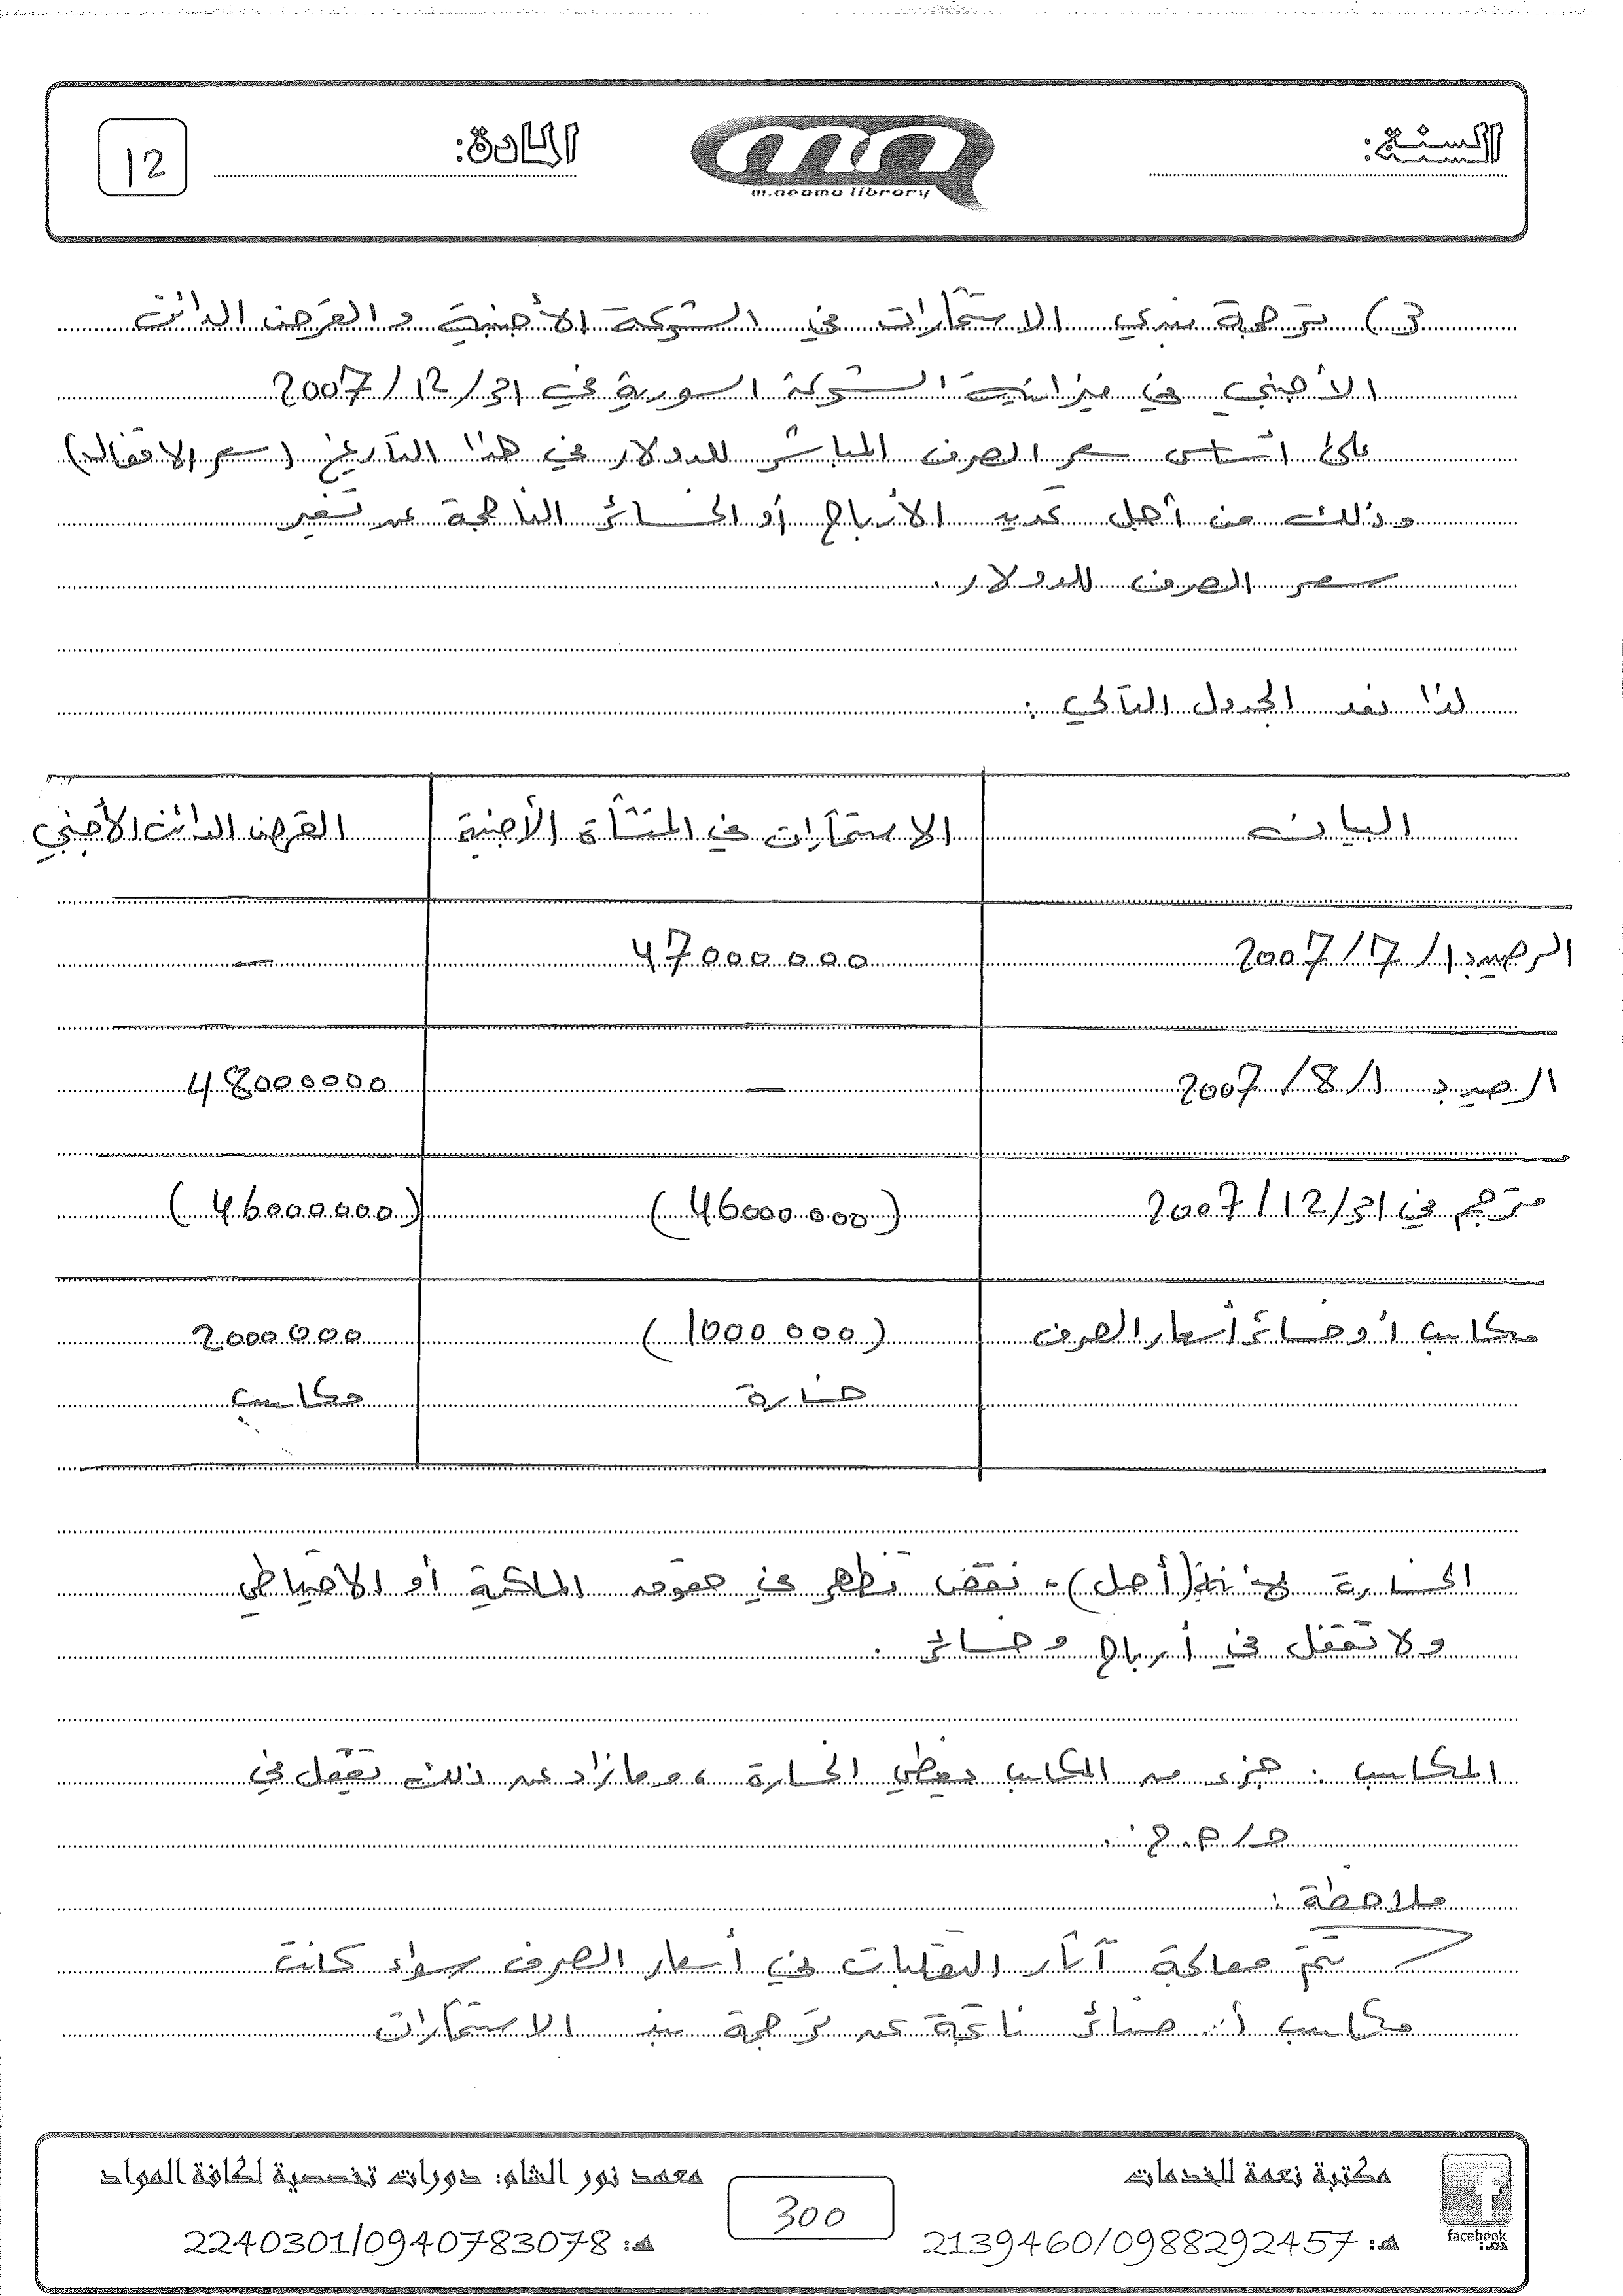 السنة:
m.neama library
المادة:
12
3) ترجمة بندي الاستثمارات في الشركة الأجنبية و القرض الدائن
الأجنبي في ميزانية الشركة السورية في 31/12/2007
على أساس سعر الصرف المباشر للدولار في هذا التاريخ (سعر الاقفال)
وذلك من أجل تحديد الأرباح أو الخسائر الناجمة عن تغير
سعر الصرف للدولار.
لذا نعد الجدول التالي :
البيان الاستثمارات في المنشأة الأجنبية القرض الدائن الأجنبي
الرصيد 1/7/2007 47000000 —
الرصيد 1/8/2007 — 48000000
مترجم في 31/12/2007 (46000000) (46000000)
مكاسب أو خسائر أسعار الصرف (1000000) 2000000
خسارة مكاسب
الخسارة (أصل)، نقص تظهر في حقوق الملكية أو الاحتياطي
ولا تقفل في أرباح وخسائر .
المكاسب : جزء من المكاسب يغطي الخسارة ، وما زاد عن ذلك تقفل في
ح/ م.خ .
ملاحظة :
تتم معالجة آثار التقلبات في أسعار الصرف سواء كانت
مكاسب أو خسائر ناتجة عن ترجمة بند الاستثمارات
مكتبة نعمة للخدمات
هـ: 2139460/0988292457
300
معهد نور الشام: دورات تخصصية لكافة المواد
هـ: 2240301/0940783078
facebook